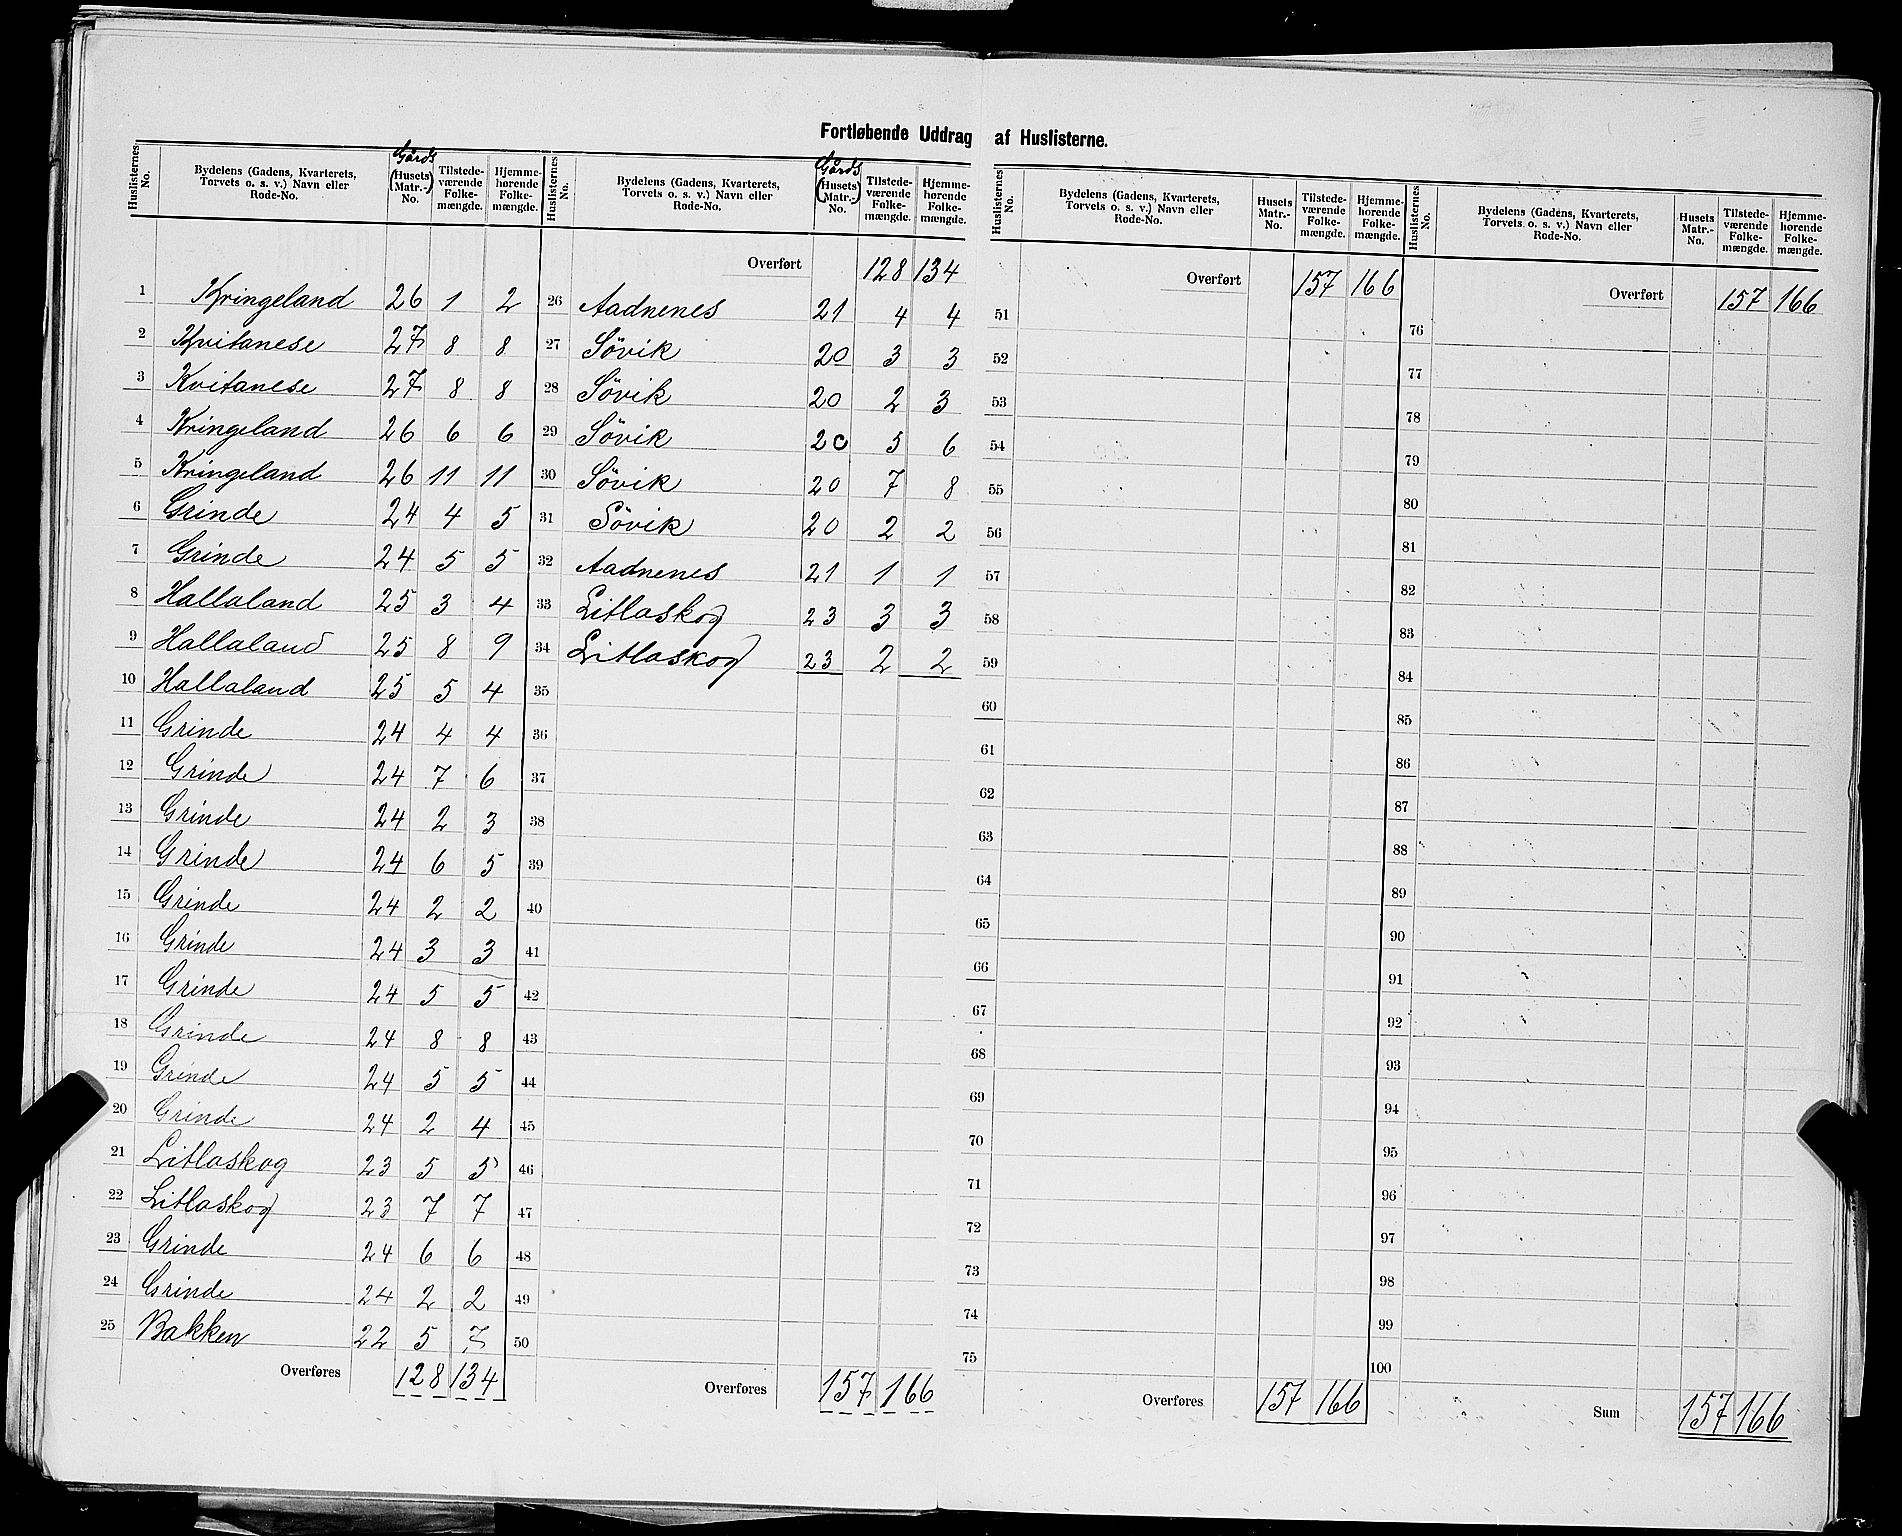 Fortløbende Uddrag af Huslisterne.
Huslisternes No. | Bydelens (Gadens, Kvarterets, Torvets o. s. v.) Navn eller Rode-No. | Gårds (Husets Matr.-) No. | Tilstedeværende Folkemængde. | Hjemmehørende Folkemængde.
1 Kringeland 26 1 2
2 Kvitanese 27 8 8
3 Kvitanese 27 8 8
4 Kringeland 26 6 6
5 Kringeland 26 11 11
6 Grinde 24 4 5
7 Grinde 24 5 5
8 Hallaland 25 3 4
9 Hallaland 25 8 9
10 Hallaland 25 5 4
11 Grinde 24 4 4
12 Grinde 24 7 6
13 Grinde 24 2 3
14 Grinde 24 6 5
15 Grinde 24 2 2
16 Grinde 24 3 3
17 Grinde 24 5 5
18 Grinde 24 8 8
19 Grinde 24 5 5
20 Grinde 24 2 4
21 Litlaskog 23 5 5
22 Litlaskog 23 7 7
23 Grinde 24 6 6
24 Grinde 24 2 2
25 Bakken 22 5 7
Overføres 128 134
Huslisternes No. | Bydelens (Gadens, Kvarterets, Torvets o. s. v.) Navn eller Rode-No. | Gårds (Husets Matr.-) No. | Tilstedeværende Folkemængde. | Hjemmehørende Folkemængde.
Overført 128 134
26 Aadnenes 21 4 4
27 Søvik 20 3 3
28 Søvik 20 2 3
29 Søvik 20 5 6
30 Søvik 20 7 8
31 Søvik 20 2 2
32 Aadnenes 21 1 1
33 Litlaskog 23 3 3
34 Litlaskog 23 2 2
35
36
37
38
39
40
41
42
43
44
45
46
47
48
49
50
Overføres 157 166
Huslisternes No. | Bydelens (Gadens, Kvarterets, Torvets o. s. v.) Navn eller Rode-No. | Husets Matr.-No. | Tilstedeværende Folkemængde. | Hjemmehørende Folkemængde.
Overført 157 166
51
52
53
54
55
56
57
58
59
60
61
62
63
64
65
66
67
68
69
70
71
72
73
74
75
Overføres 157 166
Huslisternes No. | Bydelens (Gadens, Kvarterets, Torvets o. s. v.) Navn eller Rode-No. | Husets Matr.-No. | Tilstedeværende Folkemængde. | Hjemmehørende Folkemængde.
Overført 157 166
76
77
78
79
80
81
82
83
84
85
86
87
88
89
90
91
92
93
94
95
96
97
98
99
100
Sum 157 166